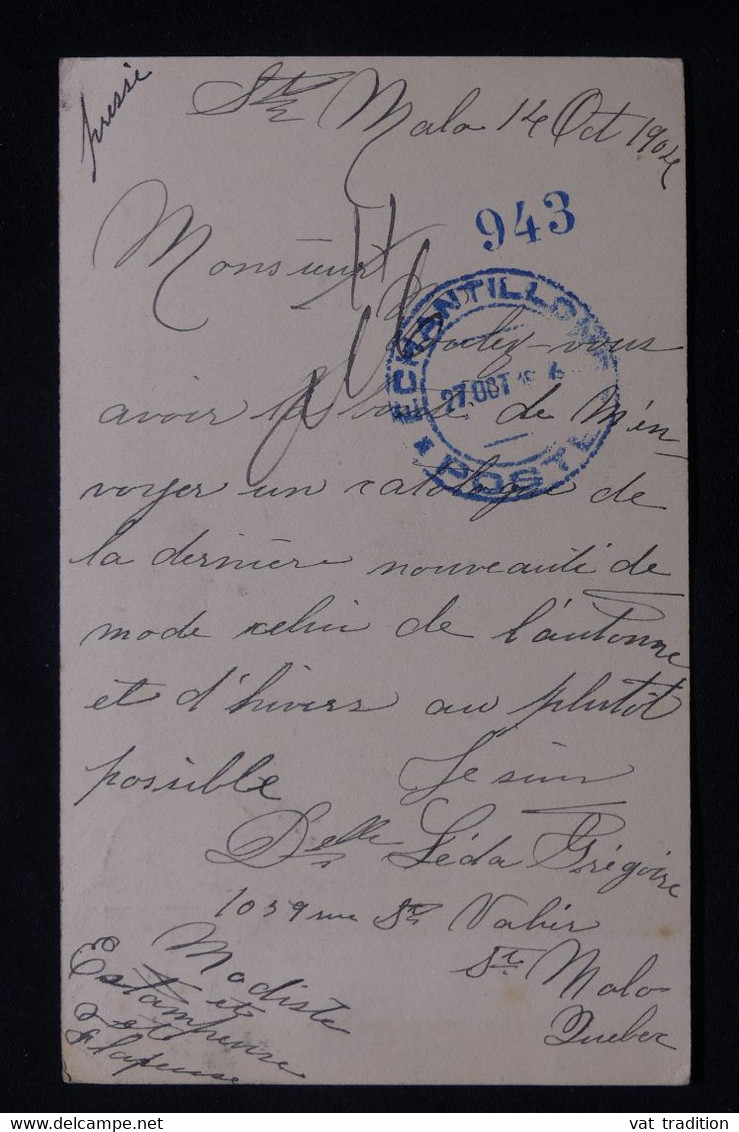 pressé
St Malo 14 Oct 1904
943
Monsieur
ECHANTILLONS
27. OCT
POSTE
Voulez-vous
avoir la bonté de M'en-
voyer un catalogue de
la dernière nouveauté de
mode celui de l'automne
et d'hivers au plutôt
possible Je suis
Delle Léda Grégoire
1039 rue St Valier
St Malo
Quebec
Modiste
et
Estampeuse
et
vat tradition